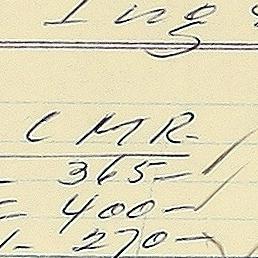 Ing
CMR
365-
400-
270-